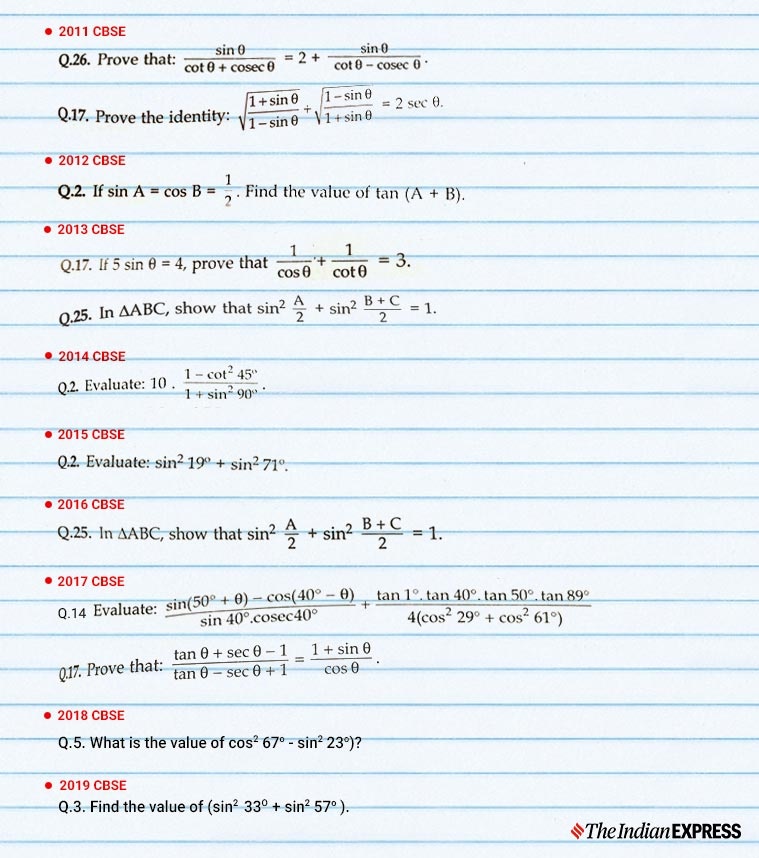 • 2011 CBSE
Q.26. Prove that: sin θ / (cot θ + cosec θ) = 2 + sin θ / (cot θ – cosec θ).
Q.17. Prove the identity: √((1 + sin θ)/(1 – sin θ)) + √((1 – sin θ)/(1 + sin θ)) = 2 sec θ.
• 2012 CBSE
Q.2. If sin A = cos B = 1/2. Find the value of tan (A + B).
• 2013 CBSE
Q.17. If 5 sin θ = 4, prove that 1/cos θ + 1/cot θ = 3.
Q.25. In ΔABC, show that sin² A/2 + sin² (B + C)/2 = 1.
• 2014 CBSE
Q.2. Evaluate: 10 . (1 – cot² 45°)/(1 + sin² 90°).
• 2015 CBSE
Q.2. Evaluate: sin² 19° + sin² 71°.
• 2016 CBSE
Q.25. In ΔABC, show that sin² A/2 + sin² (B + C)/2 = 1.
• 2017 CBSE
Q.14 Evaluate: (sin(50° + θ) – cos(40° – θ))/(sin 40°.cosec40°) + (tan 1°. tan 40°. tan 50°. tan 89°)/(4(cos² 29° + cos² 61°))
Q.17. Prove that: (tan θ + sec θ – 1)/(tan θ – sec θ + 1) = (1 + sin θ)/cos θ.
• 2018 CBSE
Q.5. What is the value of cos² 67° - sin² 23°)?
• 2019 CBSE
Q.3. Find the value of (sin² 33° + sin² 57°).
The Indian EXPRESS